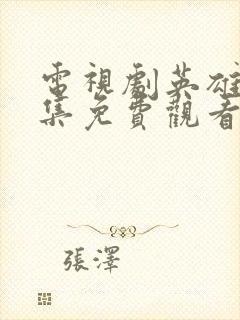 電視劇英雄
集免費觀看
張澤